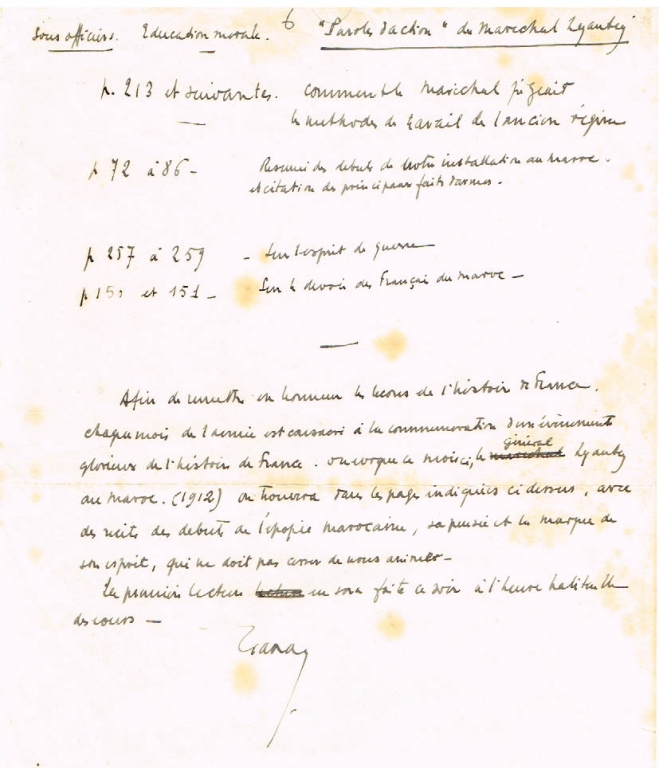 Sous officiers. Education morale. 6 "Paroles d'action" du Marechal Lyautey
p. 213 et suivantes. comment le Marechal jugeait
les methodes de travail de l'ancien régime
p 72 à 86 - Resumé des debuts de notre installation au maroc.
et citation des principaux faits d'armes.
p 257 à 259 - Sur l'esprit de guerre
p 150 et 151 - Sur le devoir des Français du maroc -
Afin de remettre en honneur les lecons de l'histoire de France.
chaque mois de l'année est consacré à la commemoration d'un évènement
glorieux de l'histoire de France. on evoque ce mois ci, le marechal général Lyautey
au maroc. (1912) on trouvera dans les pages indiquées ci dessus, avec
des recits des debuts de l'épopée marocaine, sa pensée et la marque de
son esprit, qui ne doit pas cesser de nous animer -
La première lecture lecture en sera faite ce soir à l'heure habituelle
des cours -